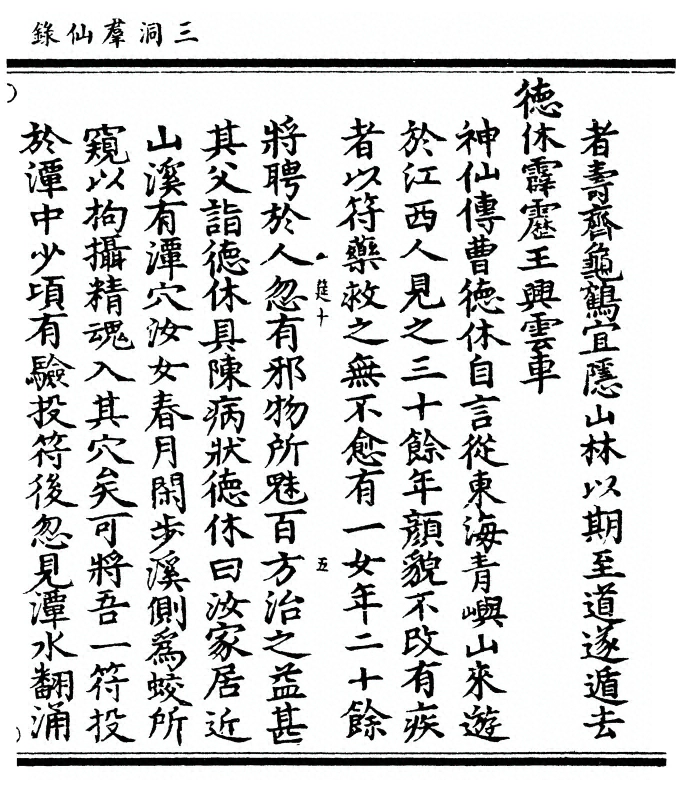 三洞羣仙錄
者壽齊龜鶴宜隱山林以期至道遂遁去
德休霹靂王興雲車
神仙傳曹德休自言從東海青嶼山來遊
於江西人見之三十餘年顏貌不改有疾
者以符藥救之無不愈有一女年二十餘
筵十
五
將聘於人忽有邪物所魅百方治之益甚
其父詣德休具陳病狀德休曰汝家居近
山溪有潭穴汝女春月閑步溪側爲蛟所
窺以拘攝精魂入其穴矣可將吾一符投
於潭中少頃有驗投符後忽見潭水翻涌